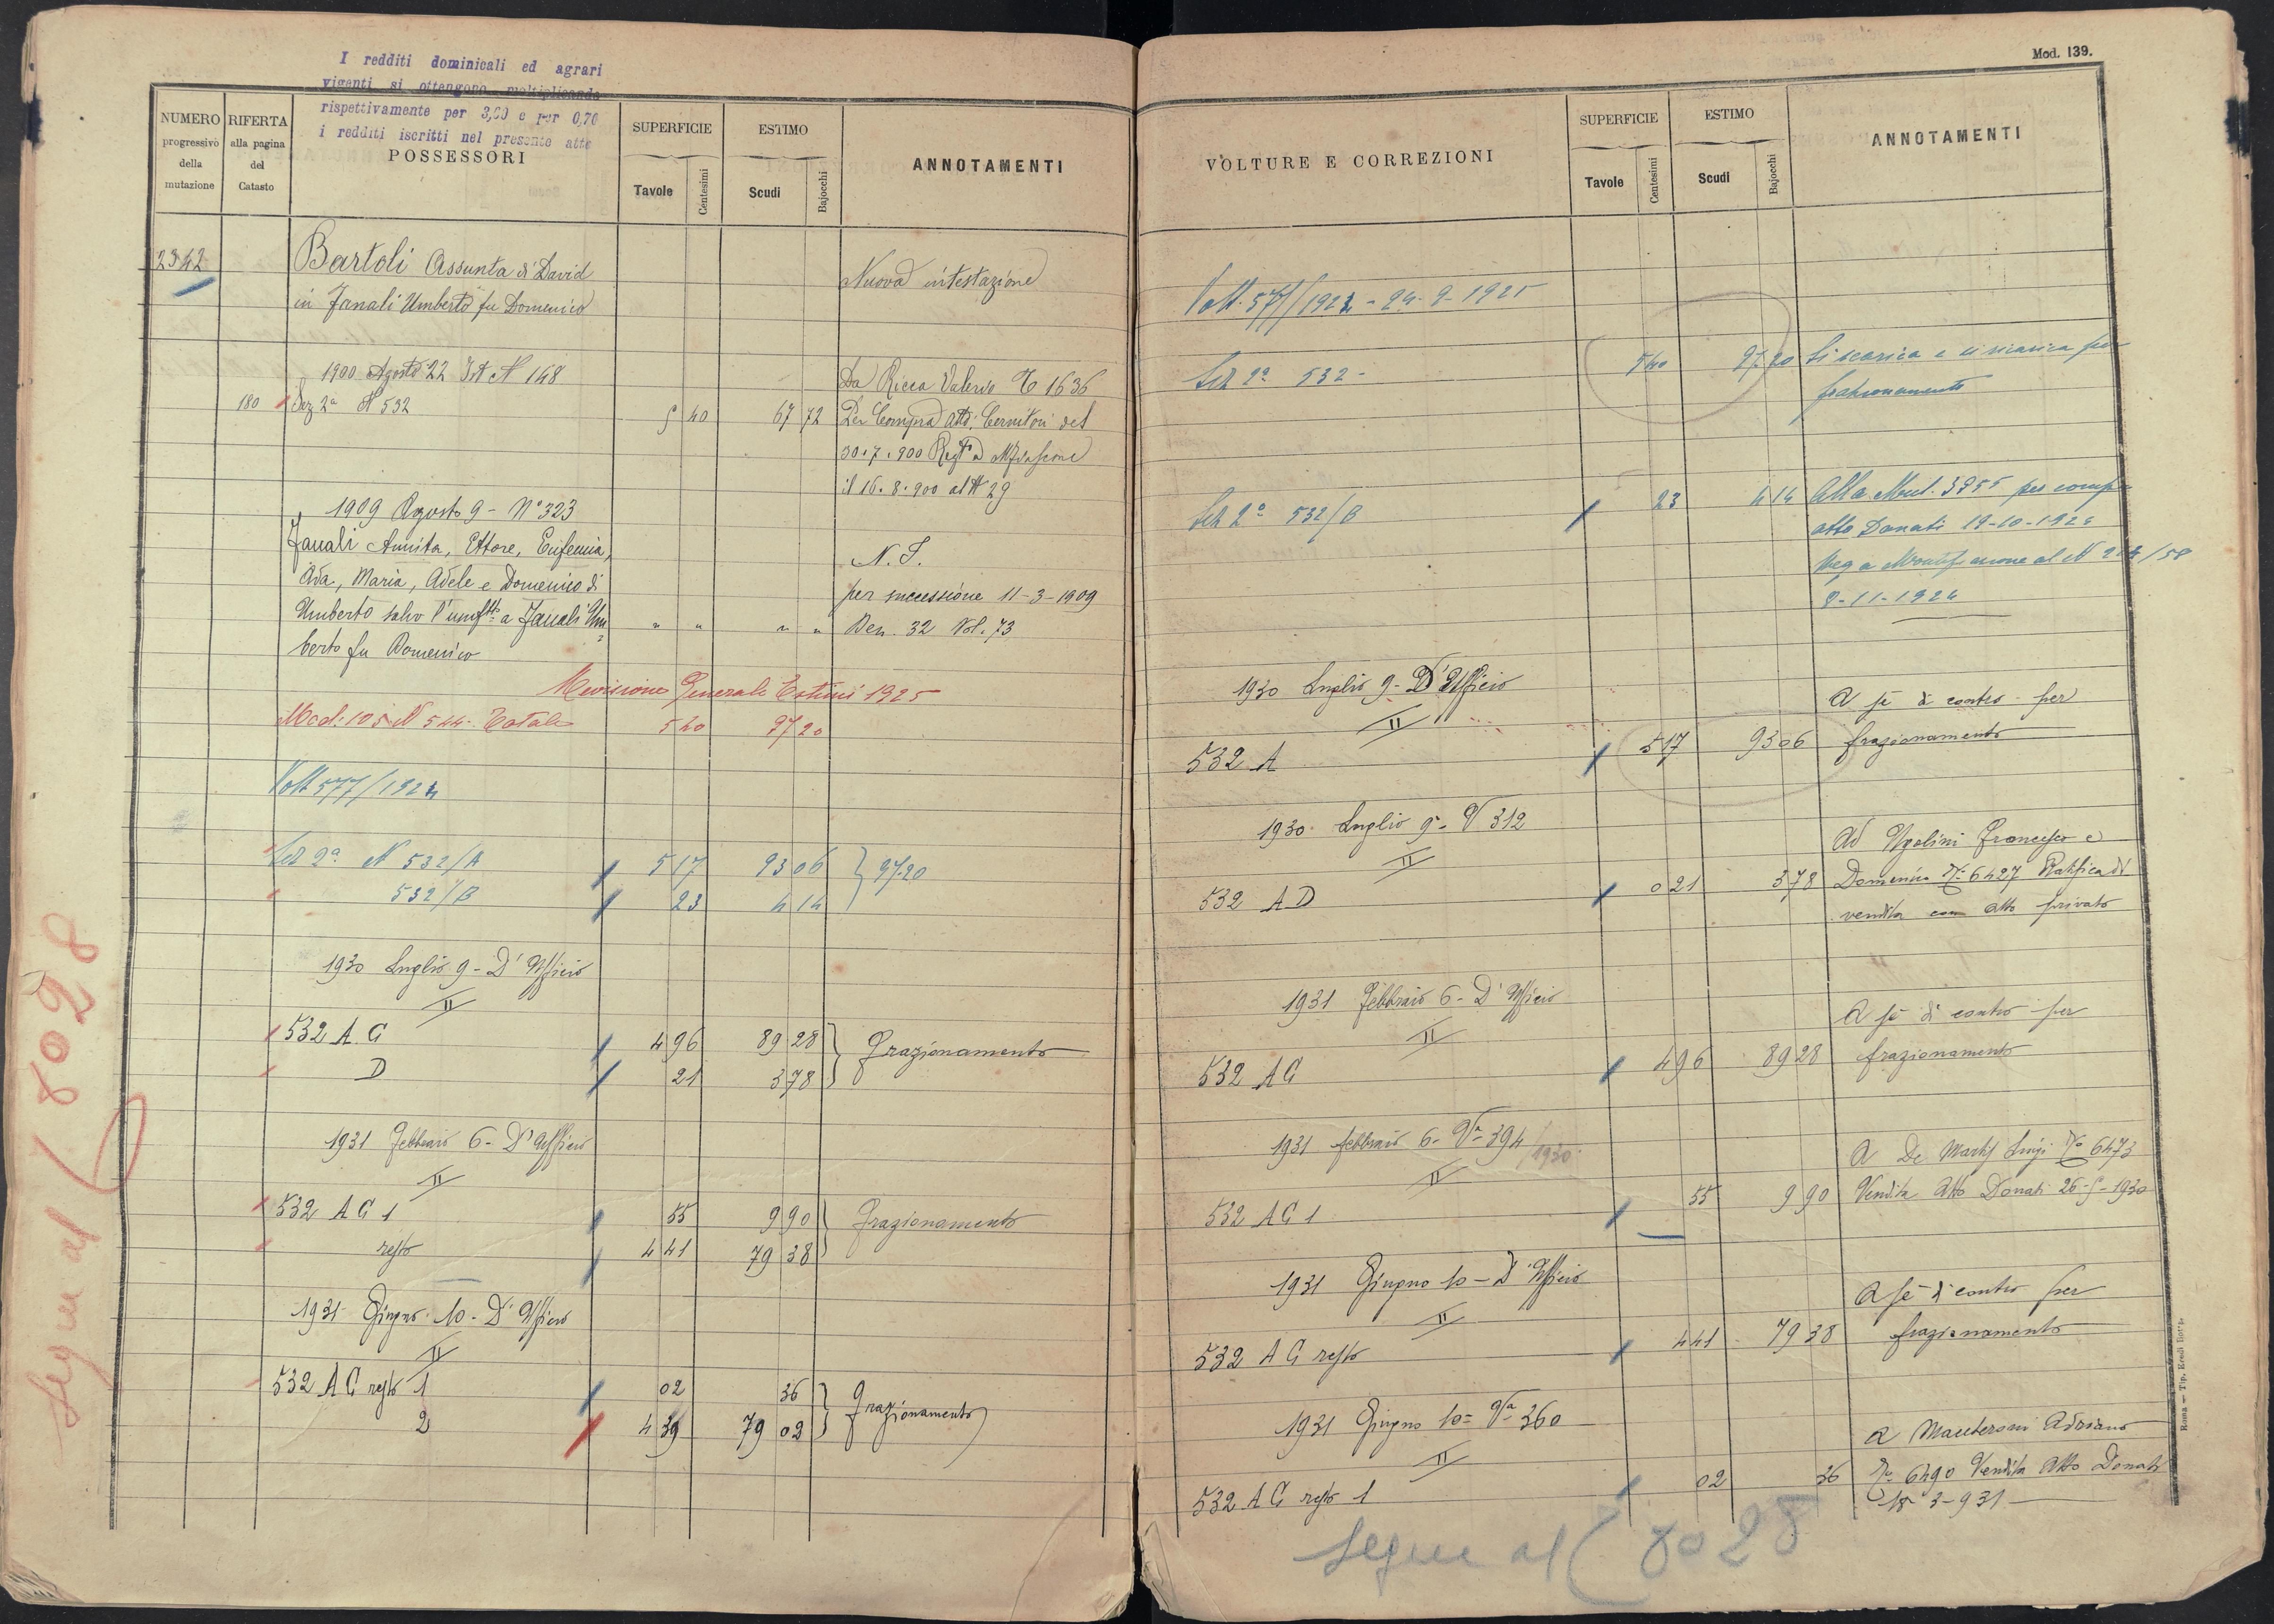 I redditi dominicali ed agrari
vigenti si ottengono moltiplicando
rispettivamente per 3,60 e per 0,70
i redditi iscritti nel presente atto
NUMERO progressivo della mutazione
RIFERTA alla pagina del Catasto
POSSESSORI
SUPERFICIE
Tavole Centesimi
ESTIMO
Scudi Bajocchi
ANNOTAMENTI
2342 Bartoli Assunta di David Nuova intestazione
in Fanali Umberto fu Domenico
1900 Agosto 22 N 148 Da Ricca 1636
180 Sez 2ª N 532 5 40 67 72 Per Compra Atto del
30.7.900 Regto a
il 16.8.900 al N 29
1909 Agosto 9 - N° 323
Fanali Annita, Ettore, Eufemia, N. I.
Ada, Maria, Adele e Domenico di per successione 11-3-1909
Umberto salvo l'usuftto a Fanali Um= " " " " Den. 32 Vol. 73
berto fu Domenico
Revisione Generale Estimi 1925
Mod: 105 N 544. Totale 5 40 97 20
Volt 577/1924
Sez 2ª N 532/A 5 17 93 06 } 97.20
532/B 23 4 14
1930 Luglio 9 - D'Ufficio
II
532 A C 4 96 89 28 } frazionamento
D 21 3 78
1931 Febbraio 6 - D'Ufficio
II
532 A C 1 55 9 90 } frazionamento
resto 4 41 79 38
1931 Giugno 10 - D'Ufficio
II
532 A C resto 1 02 36 } frazionamento
2 4 39 79 02
Segue al 8028
Mod. 139.
VOLTURE E CORREZIONI
SUPERFICIE
Tavole Centesimi
ESTIMO
Scudi Bajocchi
ANNOTAMENTI
Volt. 577/1924 - 24-9-1925
Sez 2ª 532 - 5 40 97.20 Si scarica e si ricarica per
frazionamento
Sez 2ª 532/B 23 4 14 Alla Mut. 3955 per compra
atto Donati 19-10-1924
Reg a Montefiascone al N
9-11-1924
1930 Luglio 9 - D'Ufficio A sè di contro per
II
532 A 5 17 93 06 frazionamento
1930 Luglio 9 - V 312 Ad Ugolini Francesco e
II
532 A D 0 21 3 78 Domenica N° 6427 Ratifica di
vendita con atto privato
1931 Febbraio 6 - D'Ufficio A sè di contro per
II
532 A C 4 96 89 28 frazionamento
1931 febbraio 6 - Vª 394/1930 A De Luigi N° 6473
II
532 A C 1 55 9 90 Vendita Atto Donati 26-5-1930
1931 Giugno 10 - D'Ufficio A sè di contro per
II
532 A C resto 4 41 79 38 frazionamento
1931 Giugno 10 = Vª 360 A Adriano
II
532 A C resto 1 02 36 N° 6490 Vendita Atto Donati
18-3-931
Segue al 8028